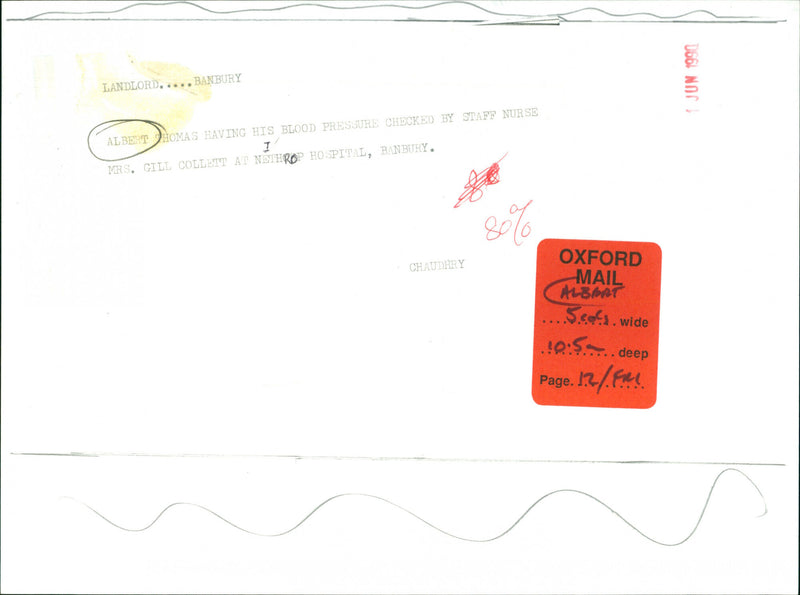 LANDLORD.....BANBURY
1 JUN 1990
ALBERT THOMAS HAVING HIS BLOOD PRESSURE CHECKED BY STAFF NURSE
I
MRS. GILL COLLETT AT NETHROP HOSPITAL, BANBURY.
80%
CHAUDHRY
OXFORD
MAIL
ALBERT
5cols wide
10.5 deep
Page. 12/FRI